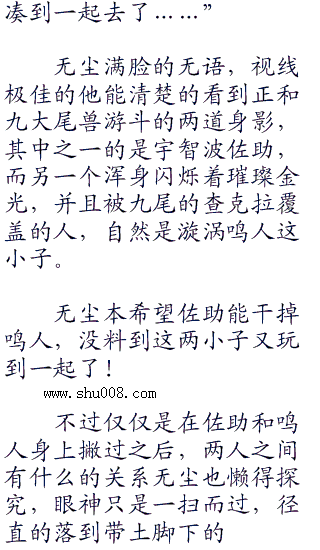 凑到一起去了……”
无尘满脸的无语，视线
极佳的他能清楚的看到正和
九大尾兽游斗的两道身影，
其中之一的是宇智波佐助，
而另一个浑身闪烁着璀璨金
光，并且被九尾的查克拉覆
盖的人，自然是漩涡鸣人这
小子。
无尘本希望佐助能干掉
鸣人，没料到这两小子又玩
到一起了！
www.shu008.com
不过仅仅是在佐助和鸣
人身上撇过之后，两人之间
有什么的关系无尘也懒得探
究，眼神只是一扫而过，径
直的落到带土脚下的